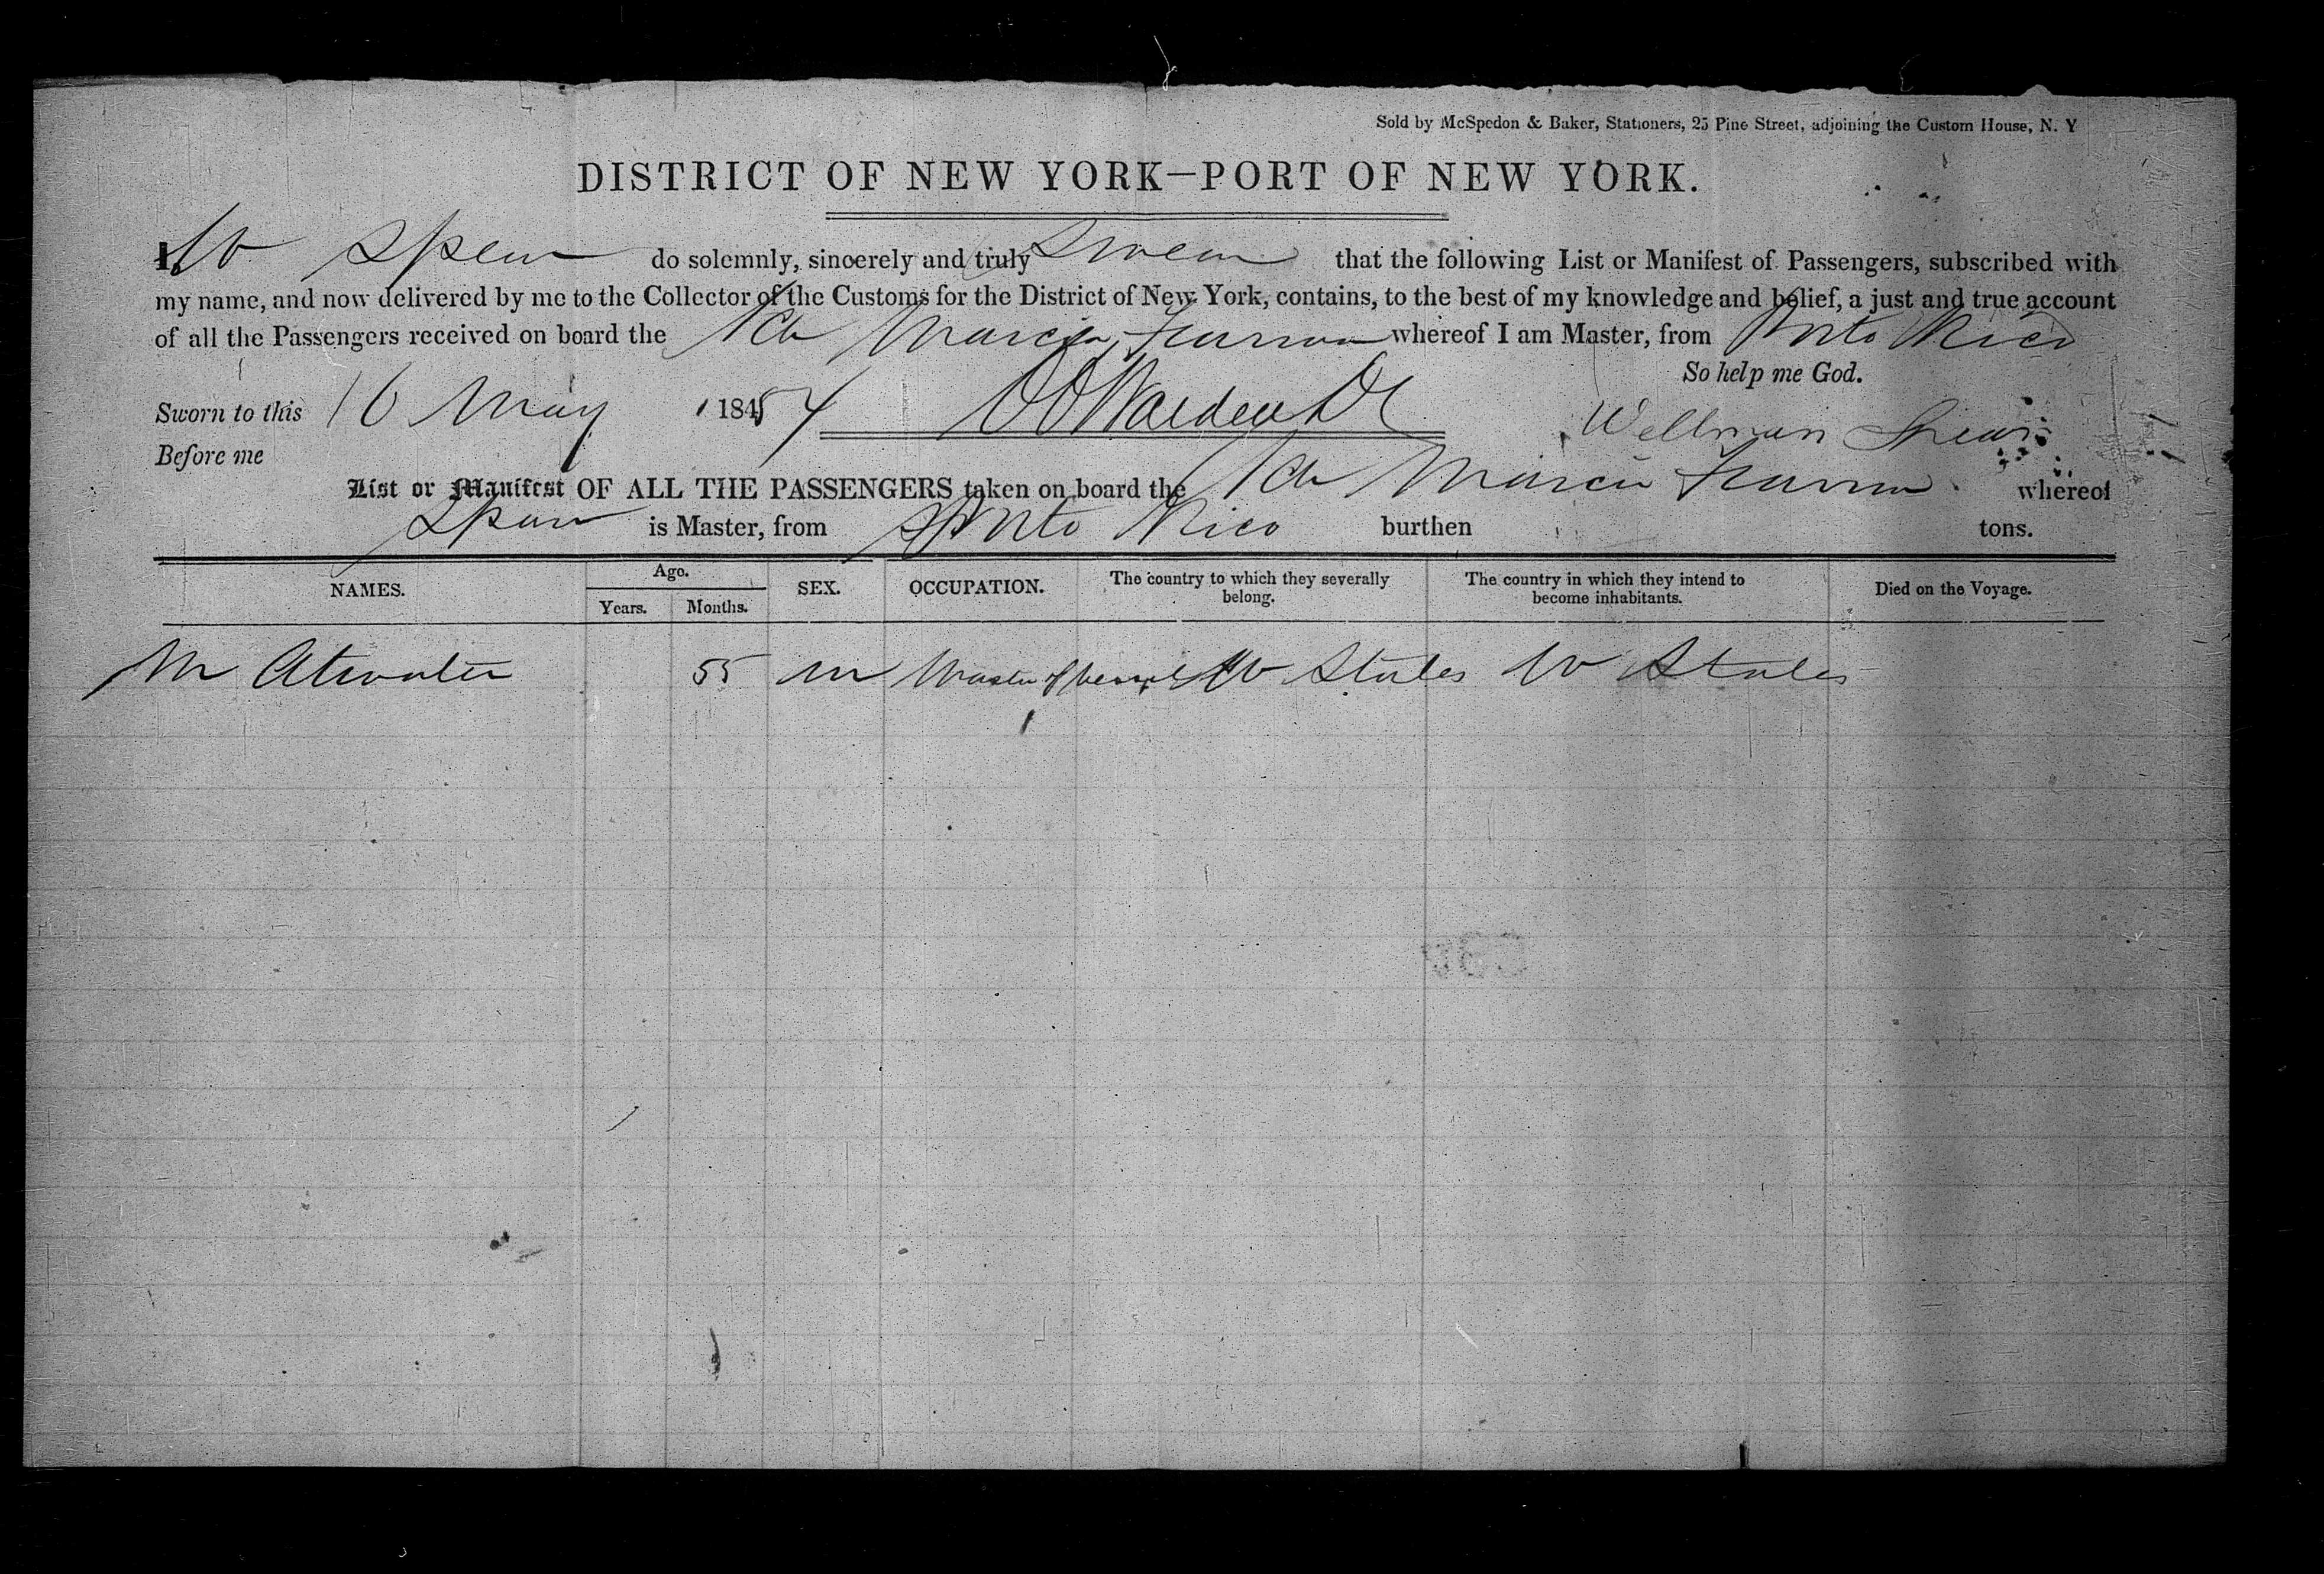 Sold by McSpedon & Baker, Stationers, 25 Pine Street, adjoining the Custom House, N. Y
DISTRICT OF NEW YORK—PORT OF NEW YORK.
I, W Spear do solemnly, sincerely and truly Swear that the following List or Manifest of Passengers, subscribed with
my name, and now delivered by me to the Collector of the Customs for the District of New York, contains, to the best of my knowledge and belief, a just and true account
of all the Passengers received on board the Sch Marcia whereof I am Master, from Porto Rico
So help me God.
Sworn to this 16 May 1854
Before me
Wellman Spear
List or Manifest OF ALL THE PASSENGERS taken on board the Sch Marcia whereof
Spear is Master, from Porto Rico burthen tons.
NAMES. Age. Years. Months. SEX. OCCUPATION. The country to which they severally belong. The country in which they intend to become inhabitants. Died on the Voyage.
M Atwater 55 m Master of vessel U States U States